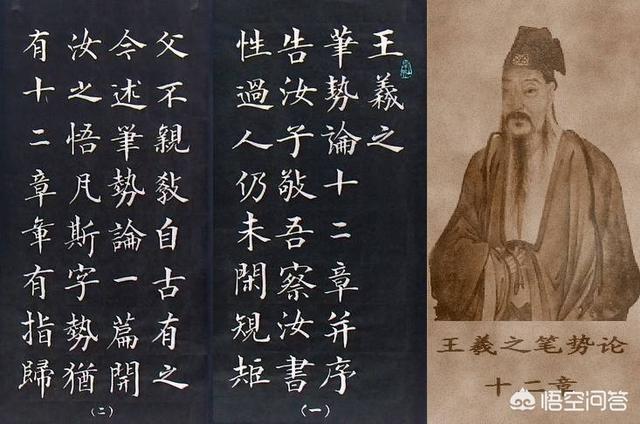 王羲之
筆勢論十二章并序
告汝子敬吾察汝書
性過人仍未閑規矩
（一）
父不親教自古有之
今述筆勢論一篇開
汝之悟凡斯字勢猶
有十二章章有指歸
（二）
王羲之笔势论
十二章
悟空问答